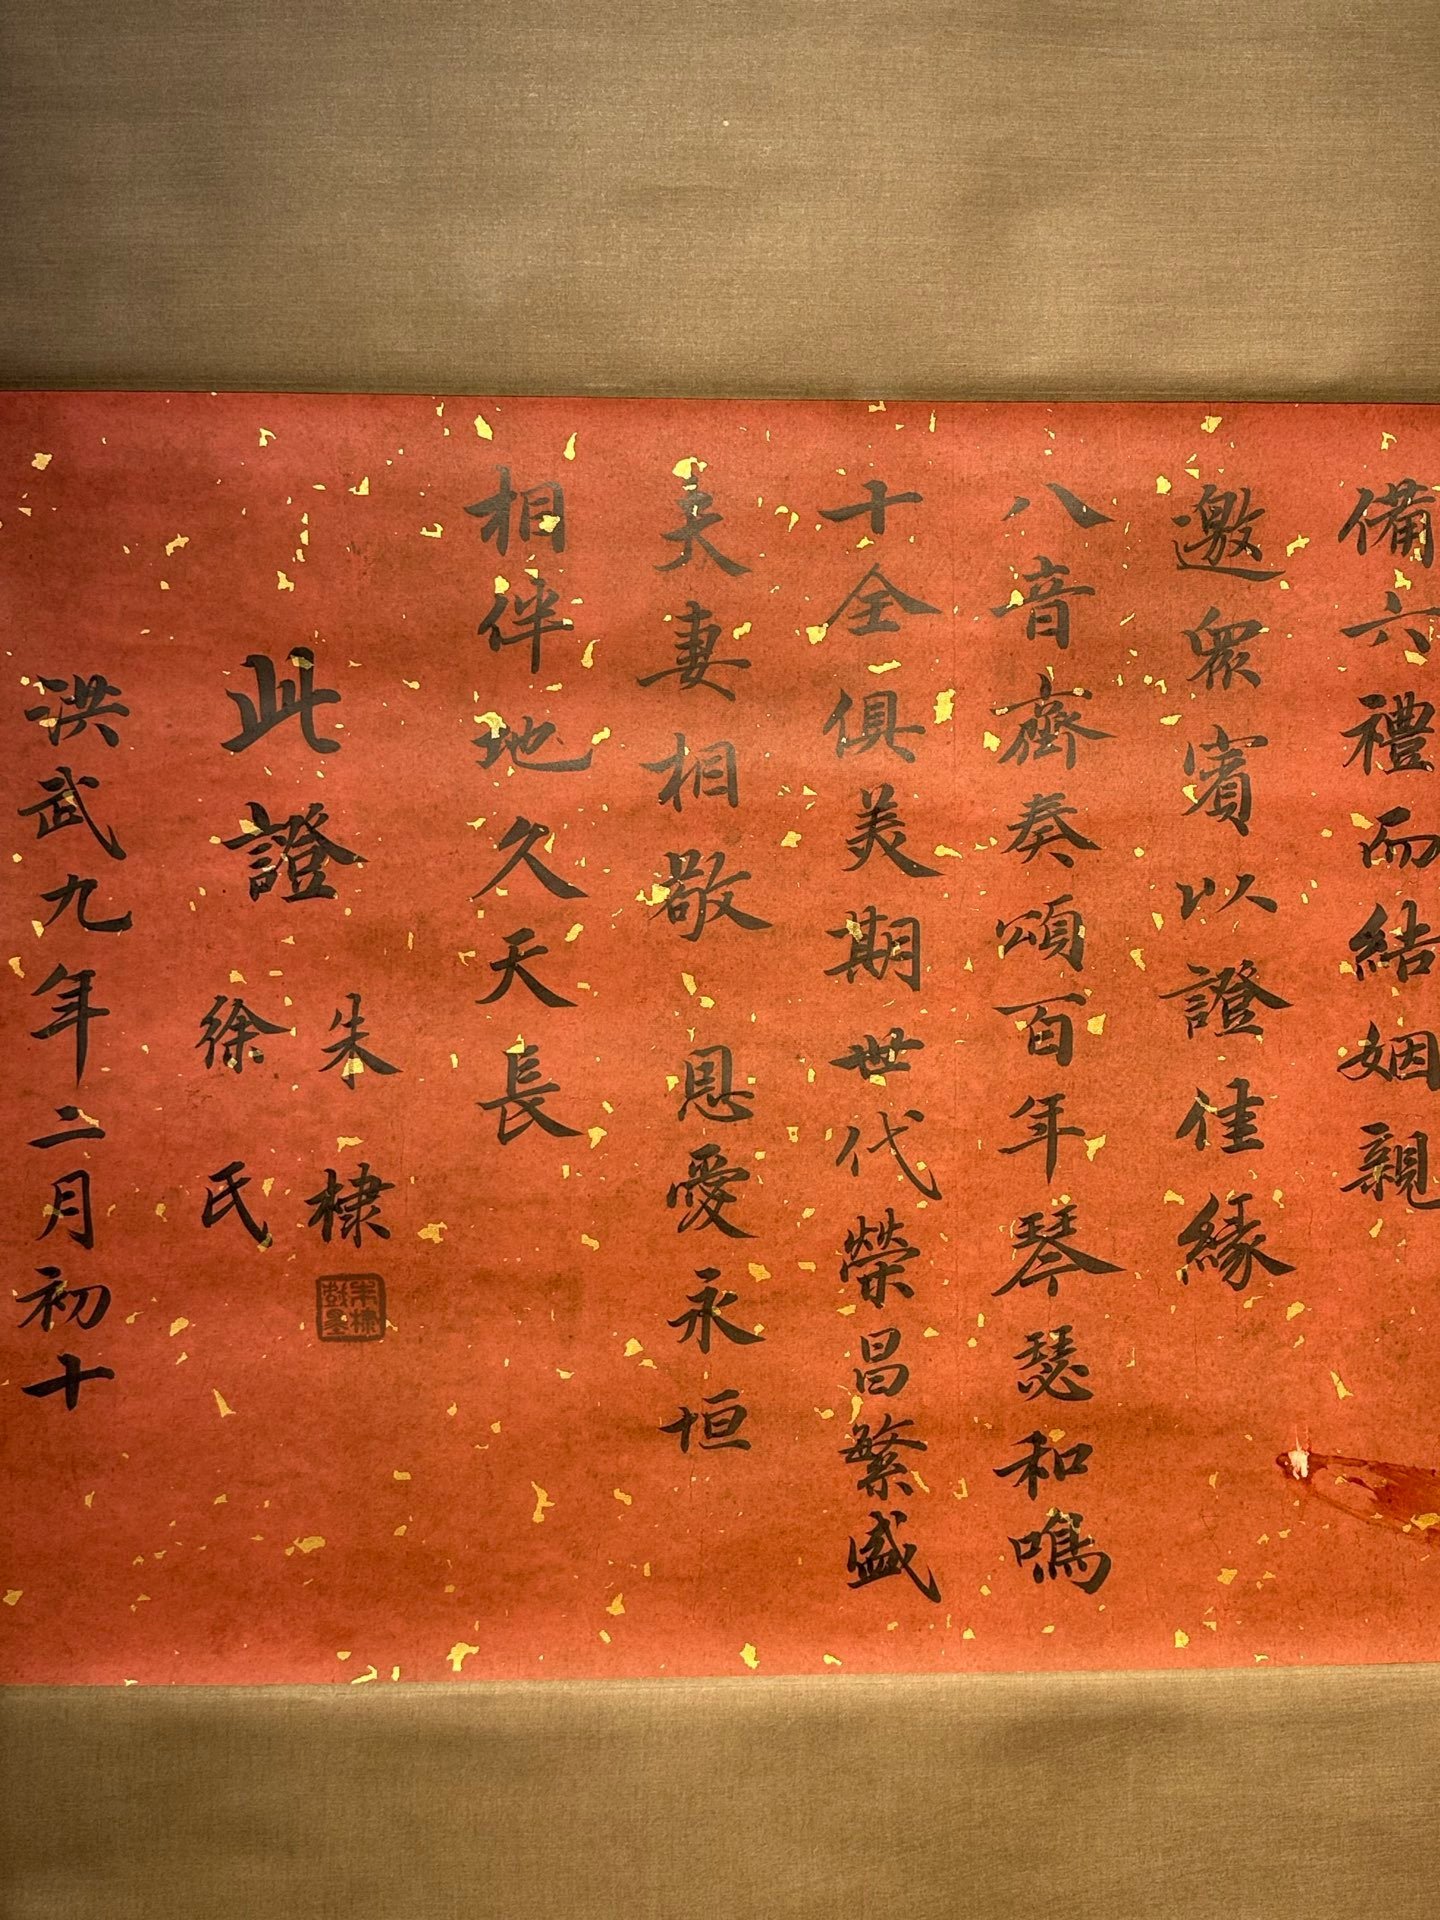 備六禮而結姻親
邀眾賓以證佳緣
八音齊奏頌百年琴瑟和鳴
十全俱美期世代榮昌繁盛
夫妻相敬恩愛永垣
相伴地久天長
此證
朱棣
徐氏
洪武九年二月初十